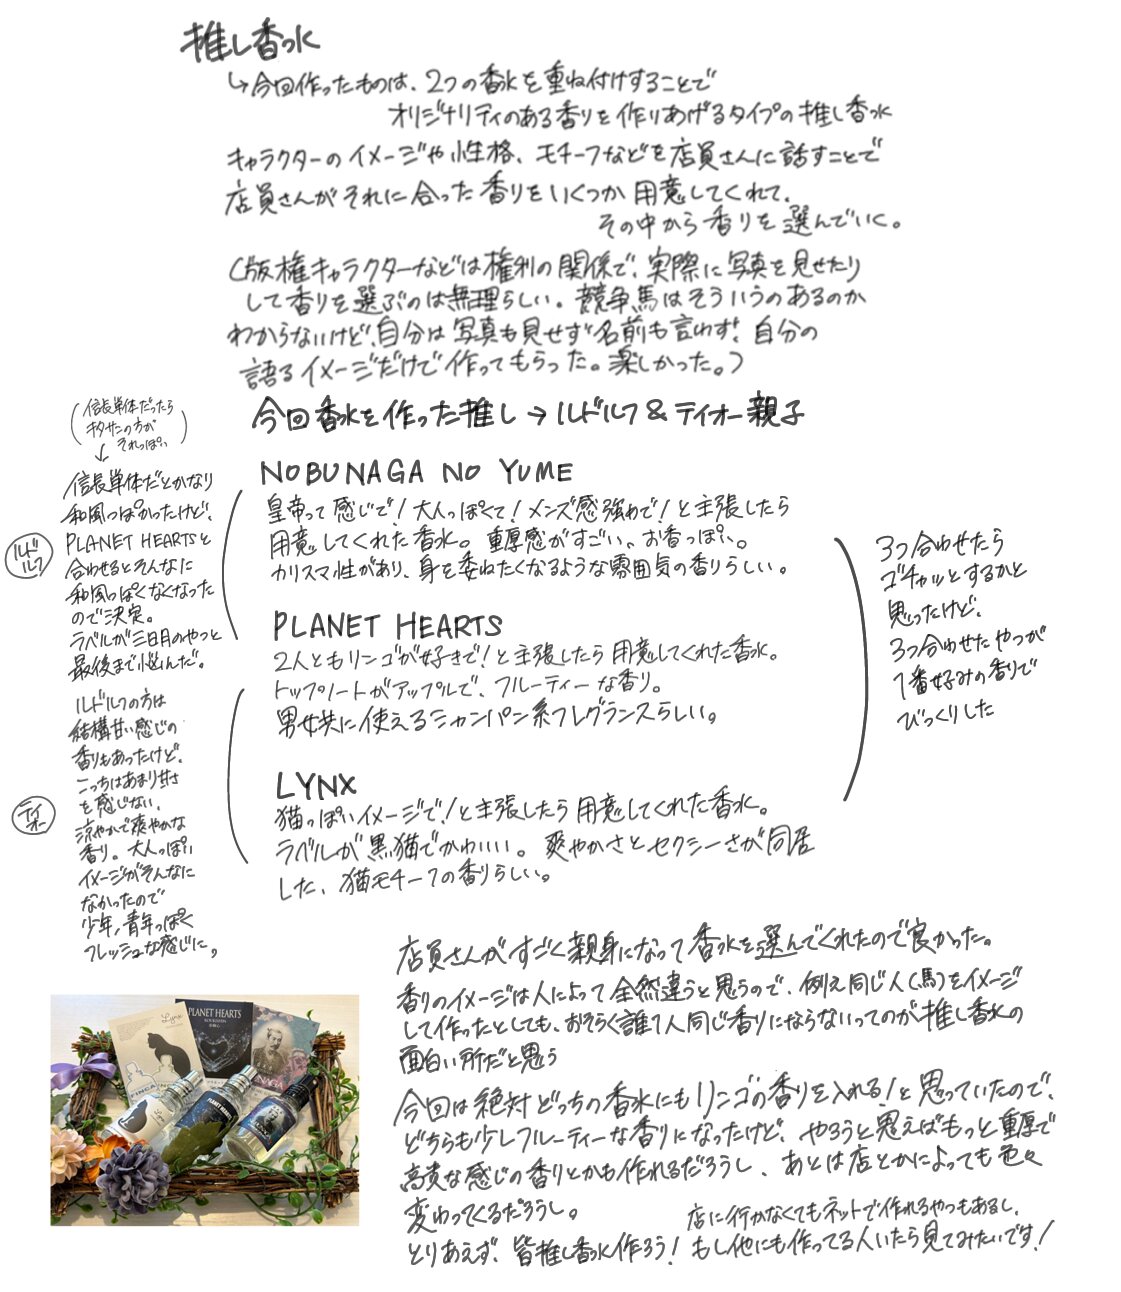 推し香水
↳今回作ったものは、2つの香水を重ね付けすることで
オリジナリティのある香りを作りあげるタイプの推し香水
キャラクターのイメージや性格、モチーフなどを店員さんに話すことで
店員さんがそれに合った香りをいくつか用意してくれて、
その中から香りを選んでいく。
(版権キャラクターなどは権利の関係で、実際に写真を見せたり
して香りを選ぶのは無理らしい。競争馬はそういうのあるのか
わからないけど、自分は写真も見せず名前も言わず、自分の
語るイメージだけで作ってもらった。楽しかった。)
今回香水を作った推し→ルドルフ&テイオー親子
(信長単体だったら
キタサンの方が
それっぽい)
↓
信長単体だとかなり
和風っぽかったけど、
PLANET HEARTSと
合わせるとそんなに
和風っぽくなくなった
ので決定。
ラベルが三日月のやつと
最後まで悩んだ。
ルドルフ
NOBUNAGA NO YUME
皇帝って感じで!大人っぽくて!メンズ感強めで!と主張したら
用意してくれた香水。重厚感がすごい、お香っぽい。
カリスマ性があり、身を委ねたくなるような雰囲気の香りらしい。
PLANET HEARTS
2人ともリンゴが好きで!と主張したら用意してくれた香水。
トップノートがアップルで、フルーティーな香り。
男女共に使えるシャンパン系フレグランスらしい。
LYNX
猫っぽいイメージで!と主張したら用意してくれた香水。
ラベルが黒猫でかわいい。爽やかさとセクシーさが同居
した、猫モチーフの香りらしい。
3つ合わせたら
ゴチャッとするかと
思ったけど、
3つ合わせたやつが
1番好みの香りで
びっくりした
ルドルフの方は
結構甘い感じの
香りもあったけど、
こっちはあまり甘さ
を感じない、
涼やかで爽やかな
香り。大人っぽい
イメージがそんなに
なかったので
少年,青年っぽく
フレッシュな感じに。
テイオー
店員さんがすごく親身になって香水を選んでくれたので良かった。
香りのイメージは人によって全然違うと思うので、例え同じ人(馬)をイメージ
して作ったとしても、おそらく誰1人同じ香りにならないってのが推し香水の
面白い所だと思う
今回は絶対どっちの香水にもリンゴの香りを入れる!と思っていたので、
どちらも少しフルーティーな香りになったけど、やろうと思えばもっと重厚で
高貴な感じの香りとかも作れるだろうし、あとは店とかによっても色々
変わってくるだろうし。
店に行かなくてもネットで作れるやつもあるし、
とりあえず、皆推し香水作ろう!もし他にも作ってる人いたら見てみたいです!
Lynx
PLANET HEARTS
FINCA
NAGA
Lynx
PLANET HEARTS